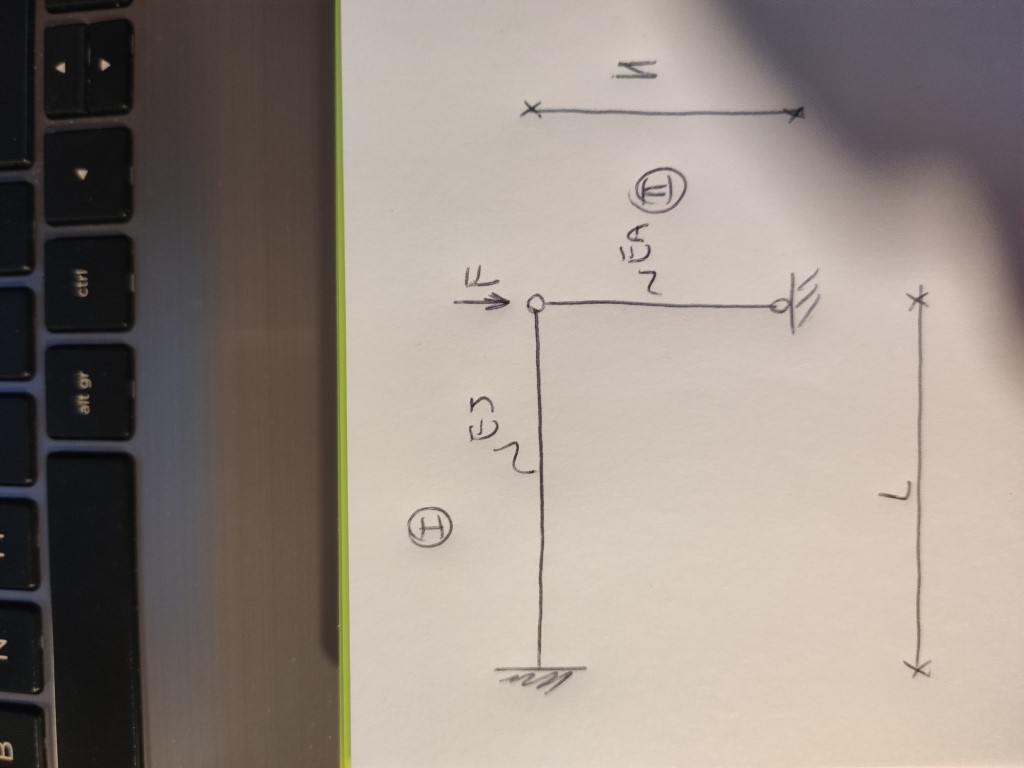 B N M
alt gr ctrl ◄ ▲
▼
I
EJ
F
EA II H
L